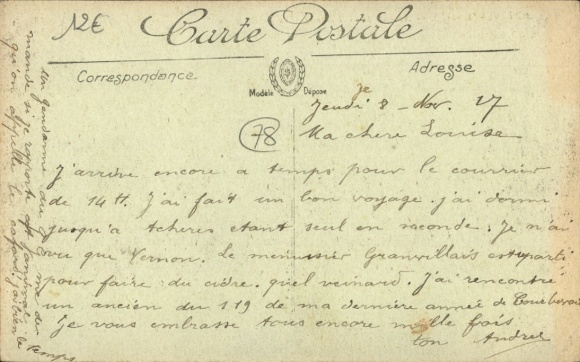 12€
Carte Postale
Correspondance
Adresse
Modèle Déposé
78
Jeudi 8 - Nov. 17
Ma chere Louise
J'arrive encore a temps pour le courrier
de 14H. J'ai fait un bon voyage. j'ai dormi
jusqu'a Acheres etant seul en seconde. Je n'ai
vu que Vernon. Le menuisier Granvillais est parti
pour faire du cidre. quel veinard. J'ai rencontré
un ancien du 119 de ma dernière année de Courbevoie
Je vous embrasse tous encore mille fois
ton André
Un gendarme du G me de
mande si je
qu'on appelle le
temps